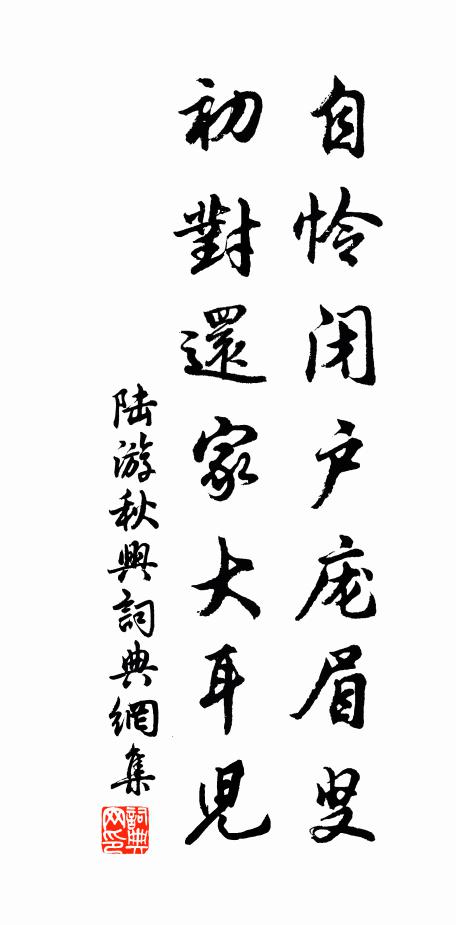 自怜闭户庞眉叟
初對還家大耳児
陆游秋興詞典網集
詞典網印